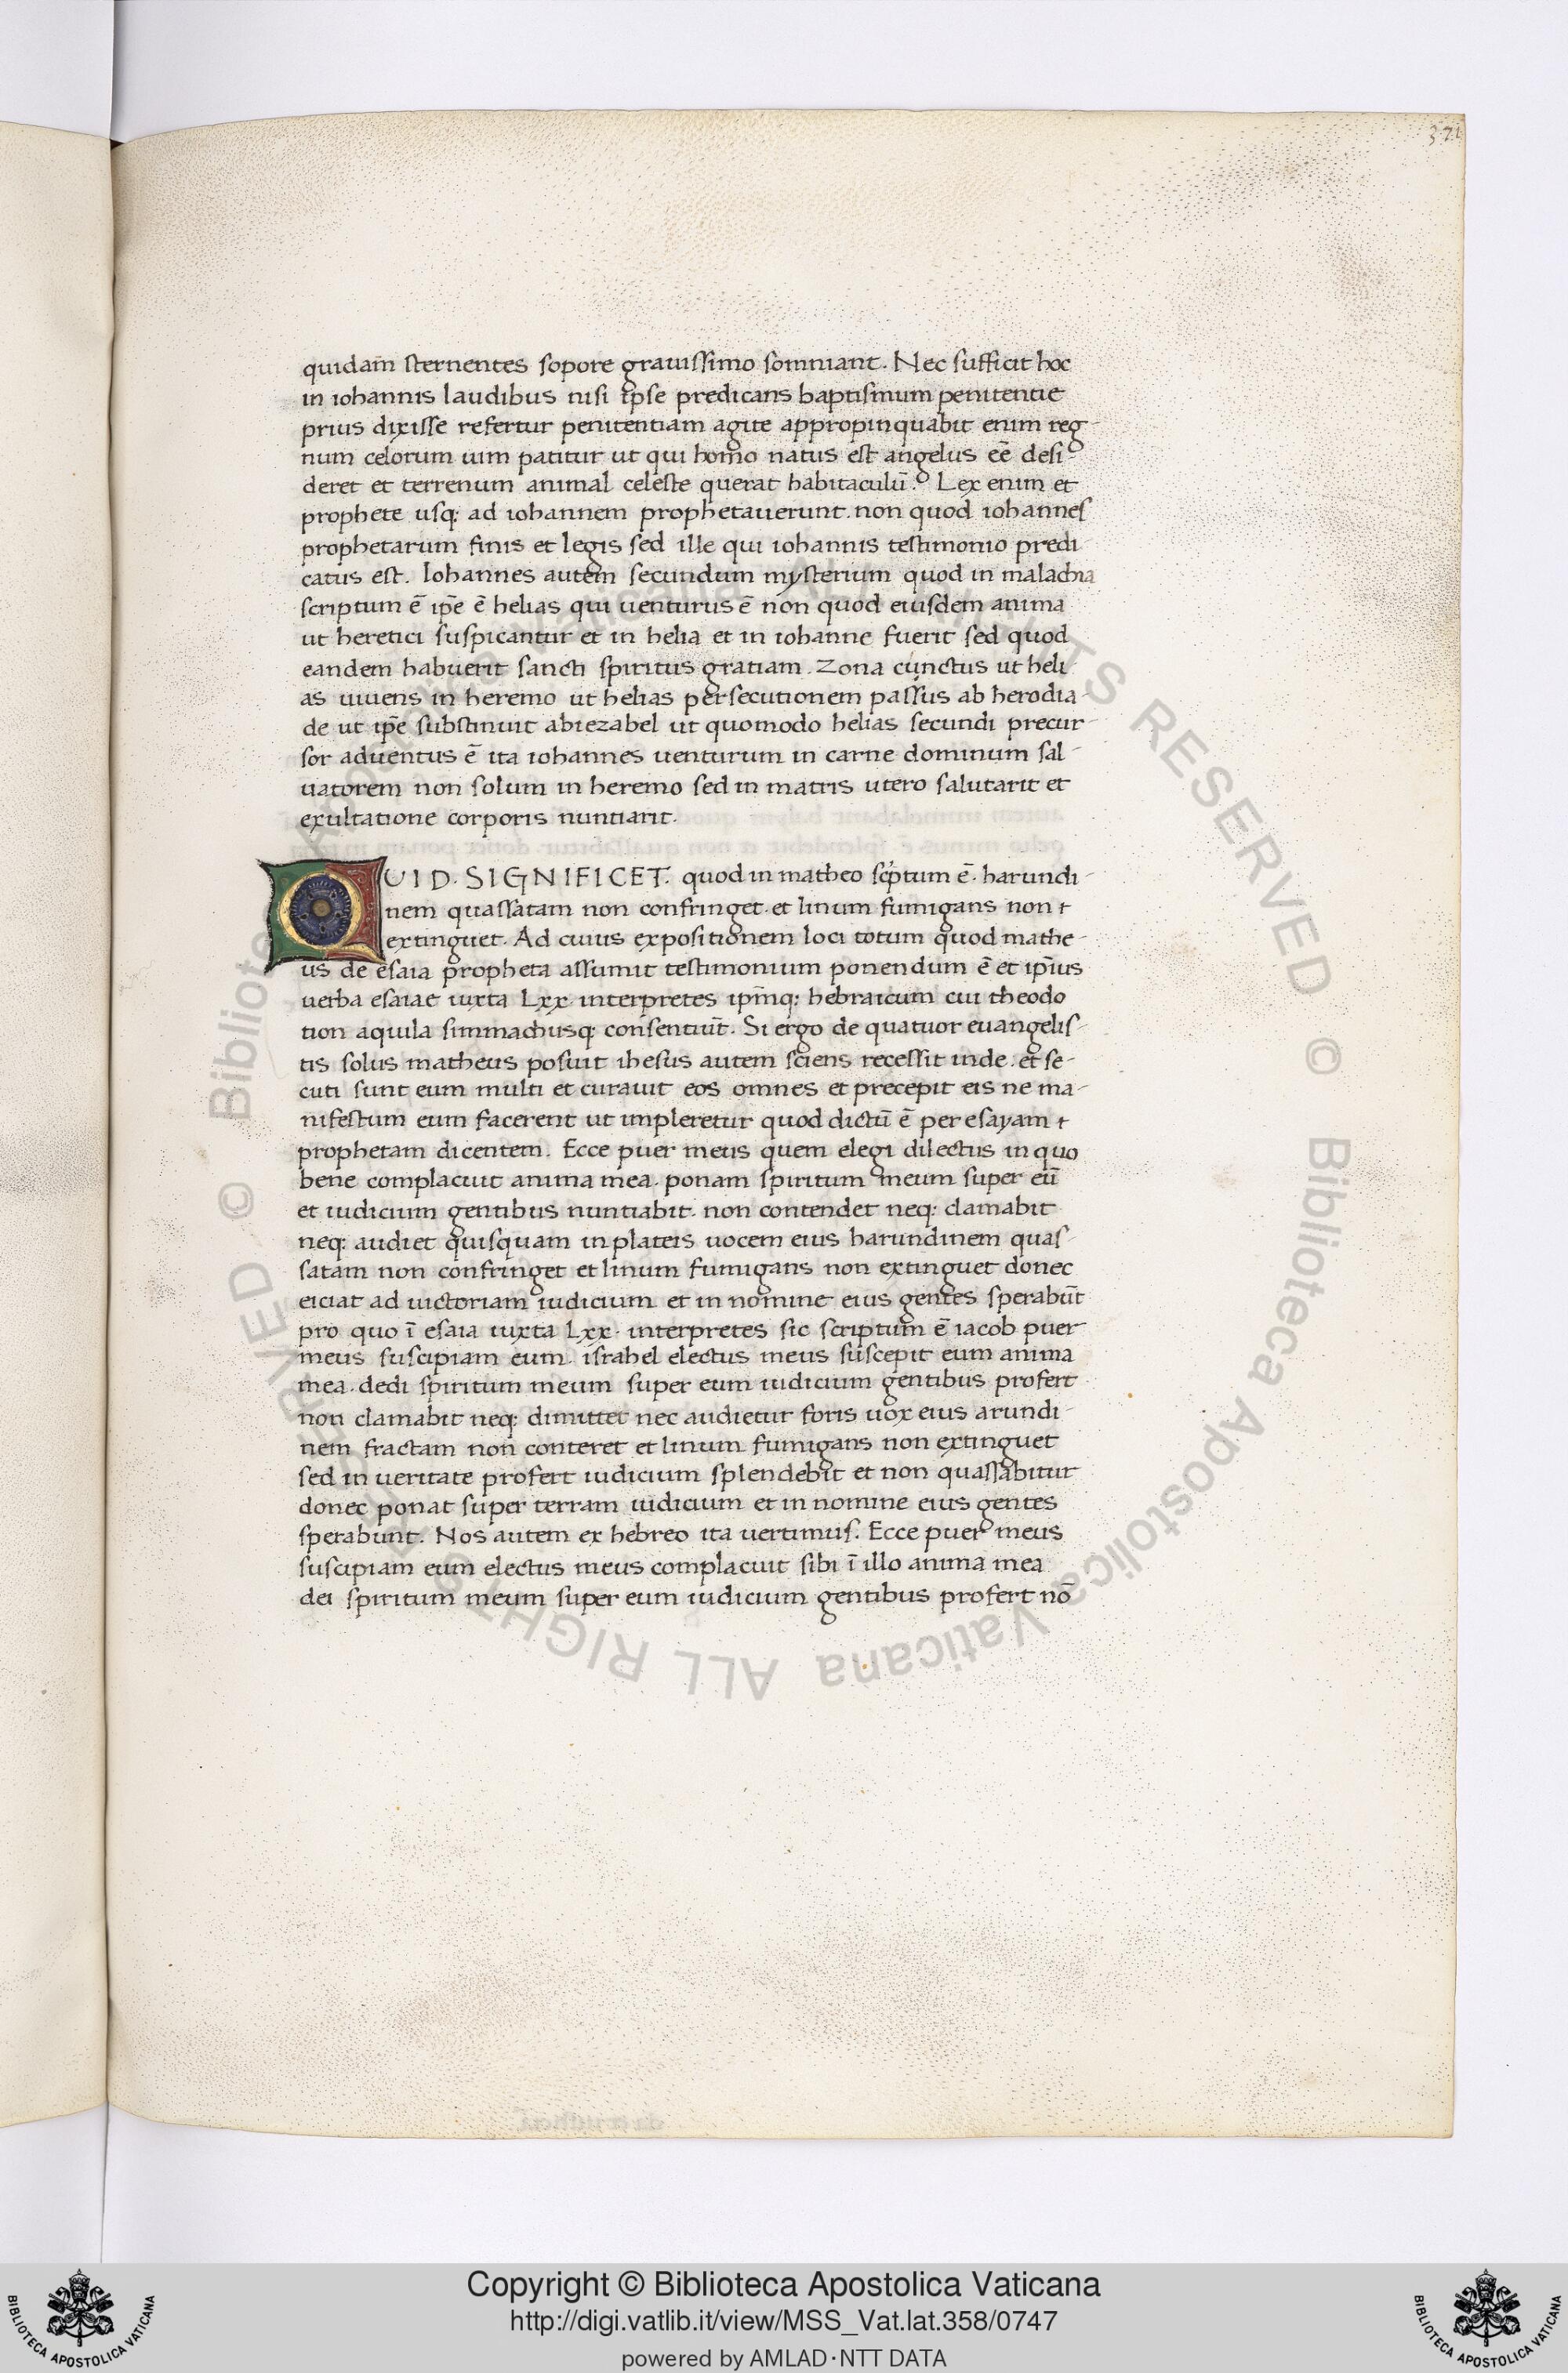 371
quidam̄ sternentes sopore grauissimo somniant. Nec sufficit hoc
in iohannis laudibus nisi ip̄se predicans baptismum penitentie
prius dixisse refertur penitentiam agite appropinquabit enim reg-
num celorum uim patitur ut qui homo natus est angelus eē desi-
deret et terrenum animal celeste querat habitaculū. Lex enim et
prophete usq: ad iohannem prophetauerunt. non quod iohannes
prophetarum finis et legis sed ille qui iohannis testimonio predi
catus est. Iohannes autem secundum mysterium quod in malachia
scriptum ē ip̄e ē helias qui uenturus ē non quod eiusdem anima
ut heretici suspicantur et in helia et in iohanne fuerit sed quod
eandem habuerit sancti spiritus gratiam. Zona cunctus ut heli-
as uiuens in heremo ut helias persecutionem passus ab herodia-
de ut ip̄e substinuit abiezabel ut quomodo helias secundi precur-
sor aduentus ē ita iohannes uenturum in carne dominum sal-
uatorem non solum in heremo sed in matris utero salutarit et
exultatione corporis nuntiarit.
QUID. SIGNIFICET. quod in matheo scptum ē. harundi-
nem quassatam non confringet. et linum fumigans non
extinguet. Ad cuius expositionem loci totum quod mathe-
us de esaia propheta assumit testimonium ponendum ē et ip̄ius
uerba esaiae iuxta Lxx. interpretes ipm̄q: hebraicum cui theodo
tion aquila simmachusq: consentiūt. Si ergo de quatuor euangelis-
tis solus matheus posuit ihesus autem sciens recessit inde. et se-
cuti sunt eum multi et curauit eos omnes et precepit eis ne ma-
nifestum eum facerent ut impleretur quod dictū ē per esayam
prophetam dicentem. Ecce puer meus quem elegi dilectus in quo
bene complacuit anima mea. ponam spiritum meum super eū
et iudicium gentibus nuntiabit. non contendet neq: clamabit
neq: audiet quisquam in plateis uocem eius harundinem quas-
satam non confringet et linum fumigans non extinguet donec
eiciat ad uictoriam iudicium et in nomine eius gentes sperabūt
pro quo ī esaia iuxta Lxx. interpretes sic scriptum ē iacob puer
meus suscipiam eum. israhel electus meus suscepit eum anima
mea. dedi spiritum meum super eum iudicium gentibus profert
non clamabit neq: dimittet nec audietur foris uox eius arundi-
nem fractam non conteret et linum fumigans non extinguet
sed in ueritate profert iudicium splendebit et non quassabitur
donec ponat super terram iudicium et in nomine eius gentes
sperabunt. Nos autem ex hebreo ita uertimus. Ecce puer meus
suscipiam eum electus meus complacuit sibi ī illo anima mea
dei spiritum meum super eum iudicium gentibus profert nō
© Biblioteca Apostolica Vaticana ALL RIGHTS RESERVED © Biblioteca Apostolica Vaticana ALL RIGHTS RESERVED
BIBLIOTECA APOSTOLICA VATICANA
Copyright © Biblioteca Apostolica Vaticana
http://digi.vatlib.it/view/MSS_Vat.lat.358/0747
powered by AMLAD·NTT DATA
BIBLIOTECA APOSTOLICA VATICANA